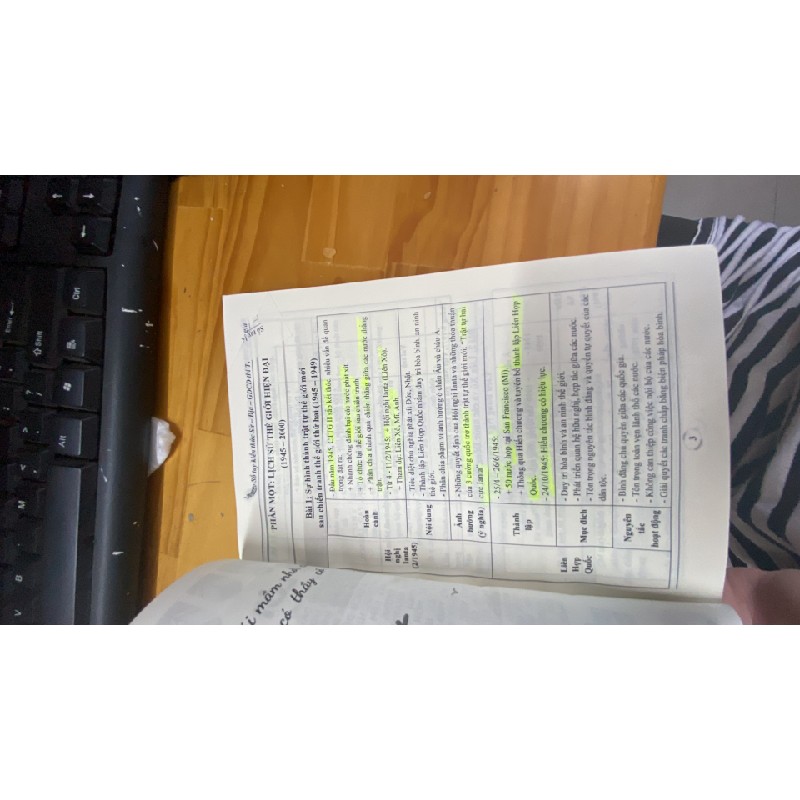 Sổ tay kiến thức Sử - Địa - GDCD H.T.
PHẦN MỘT: LỊCH SỬ THẾ GIỚI HIỆN ĐẠI
(1945 – 2000)
Bài 1: Sự hình thành trật tự thế giới mới
sau chiến tranh thế giới thứ hai (1945 – 1949)
Hội
nghị
Ianta
(2/1945)
Hoàn
cảnh
Đầu năm 1945, CTTG II sắp kết thúc, nhiều vấn đề quan
trọng đặt ra:
+ Nhanh chóng đánh bại các nước phát xít
+ Tổ chức lại thế giới sau chiến tranh
+ Phân chia thành quả chiến thắng giữa các nước thắng
trận.
- Từ 4 - 11/2/1945: Hội nghị Ianta (Liên Xô).
+ Tham dự: Liên Xô, Mĩ, Anh
Nội dung
- Tiêu diệt chủ nghĩa phát xít Đức, Nhật.
- Thành lập Liên Hợp Quốc nhằm duy trì hòa bình, an ninh
thế giới.
- Phân chia phạm vi ảnh hưởng ở châu Âu và châu Á.
Ảnh
hưởng
(ý nghĩa)
- Những quyết định của Hội nghị Ianta và những thỏa thuận
của 3 cường quốc trở thành trật tự thế giới mới: "Trật tự hai
cực Ianta"
Liên
Hợp
Quốc
Thành
lập
- 25/4 – 26/6/1945:
+ 50 nước họp tại San Francisco (Mĩ)
+ Thông qua Hiến chương và tuyên bố thành lập Liên Hợp
Quốc.
- 24/10/1945: Hiến chương có hiệu lực.
Mục đích
- Duy trì hòa bình và an ninh thế giới.
- Phát triển quan hệ hữu nghị, hợp tác giữa các nước.
- Tôn trọng nguyên tắc bình đẳng và quyền tự quyết của các
dân tộc.
Nguyên
tắc
hoạt động
- Bình đẳng chủ quyền giữa các quốc gia.
- Tôn trọng toàn vẹn lãnh thổ các nước.
- Không can thiệp công việc nội bộ của các nước.
- Giải quyết các tranh chấp bằng biện pháp hòa bình.
mầm nhỏ
có thấy
Enter
Shift
Ctrl
Alt
V
B
N
M